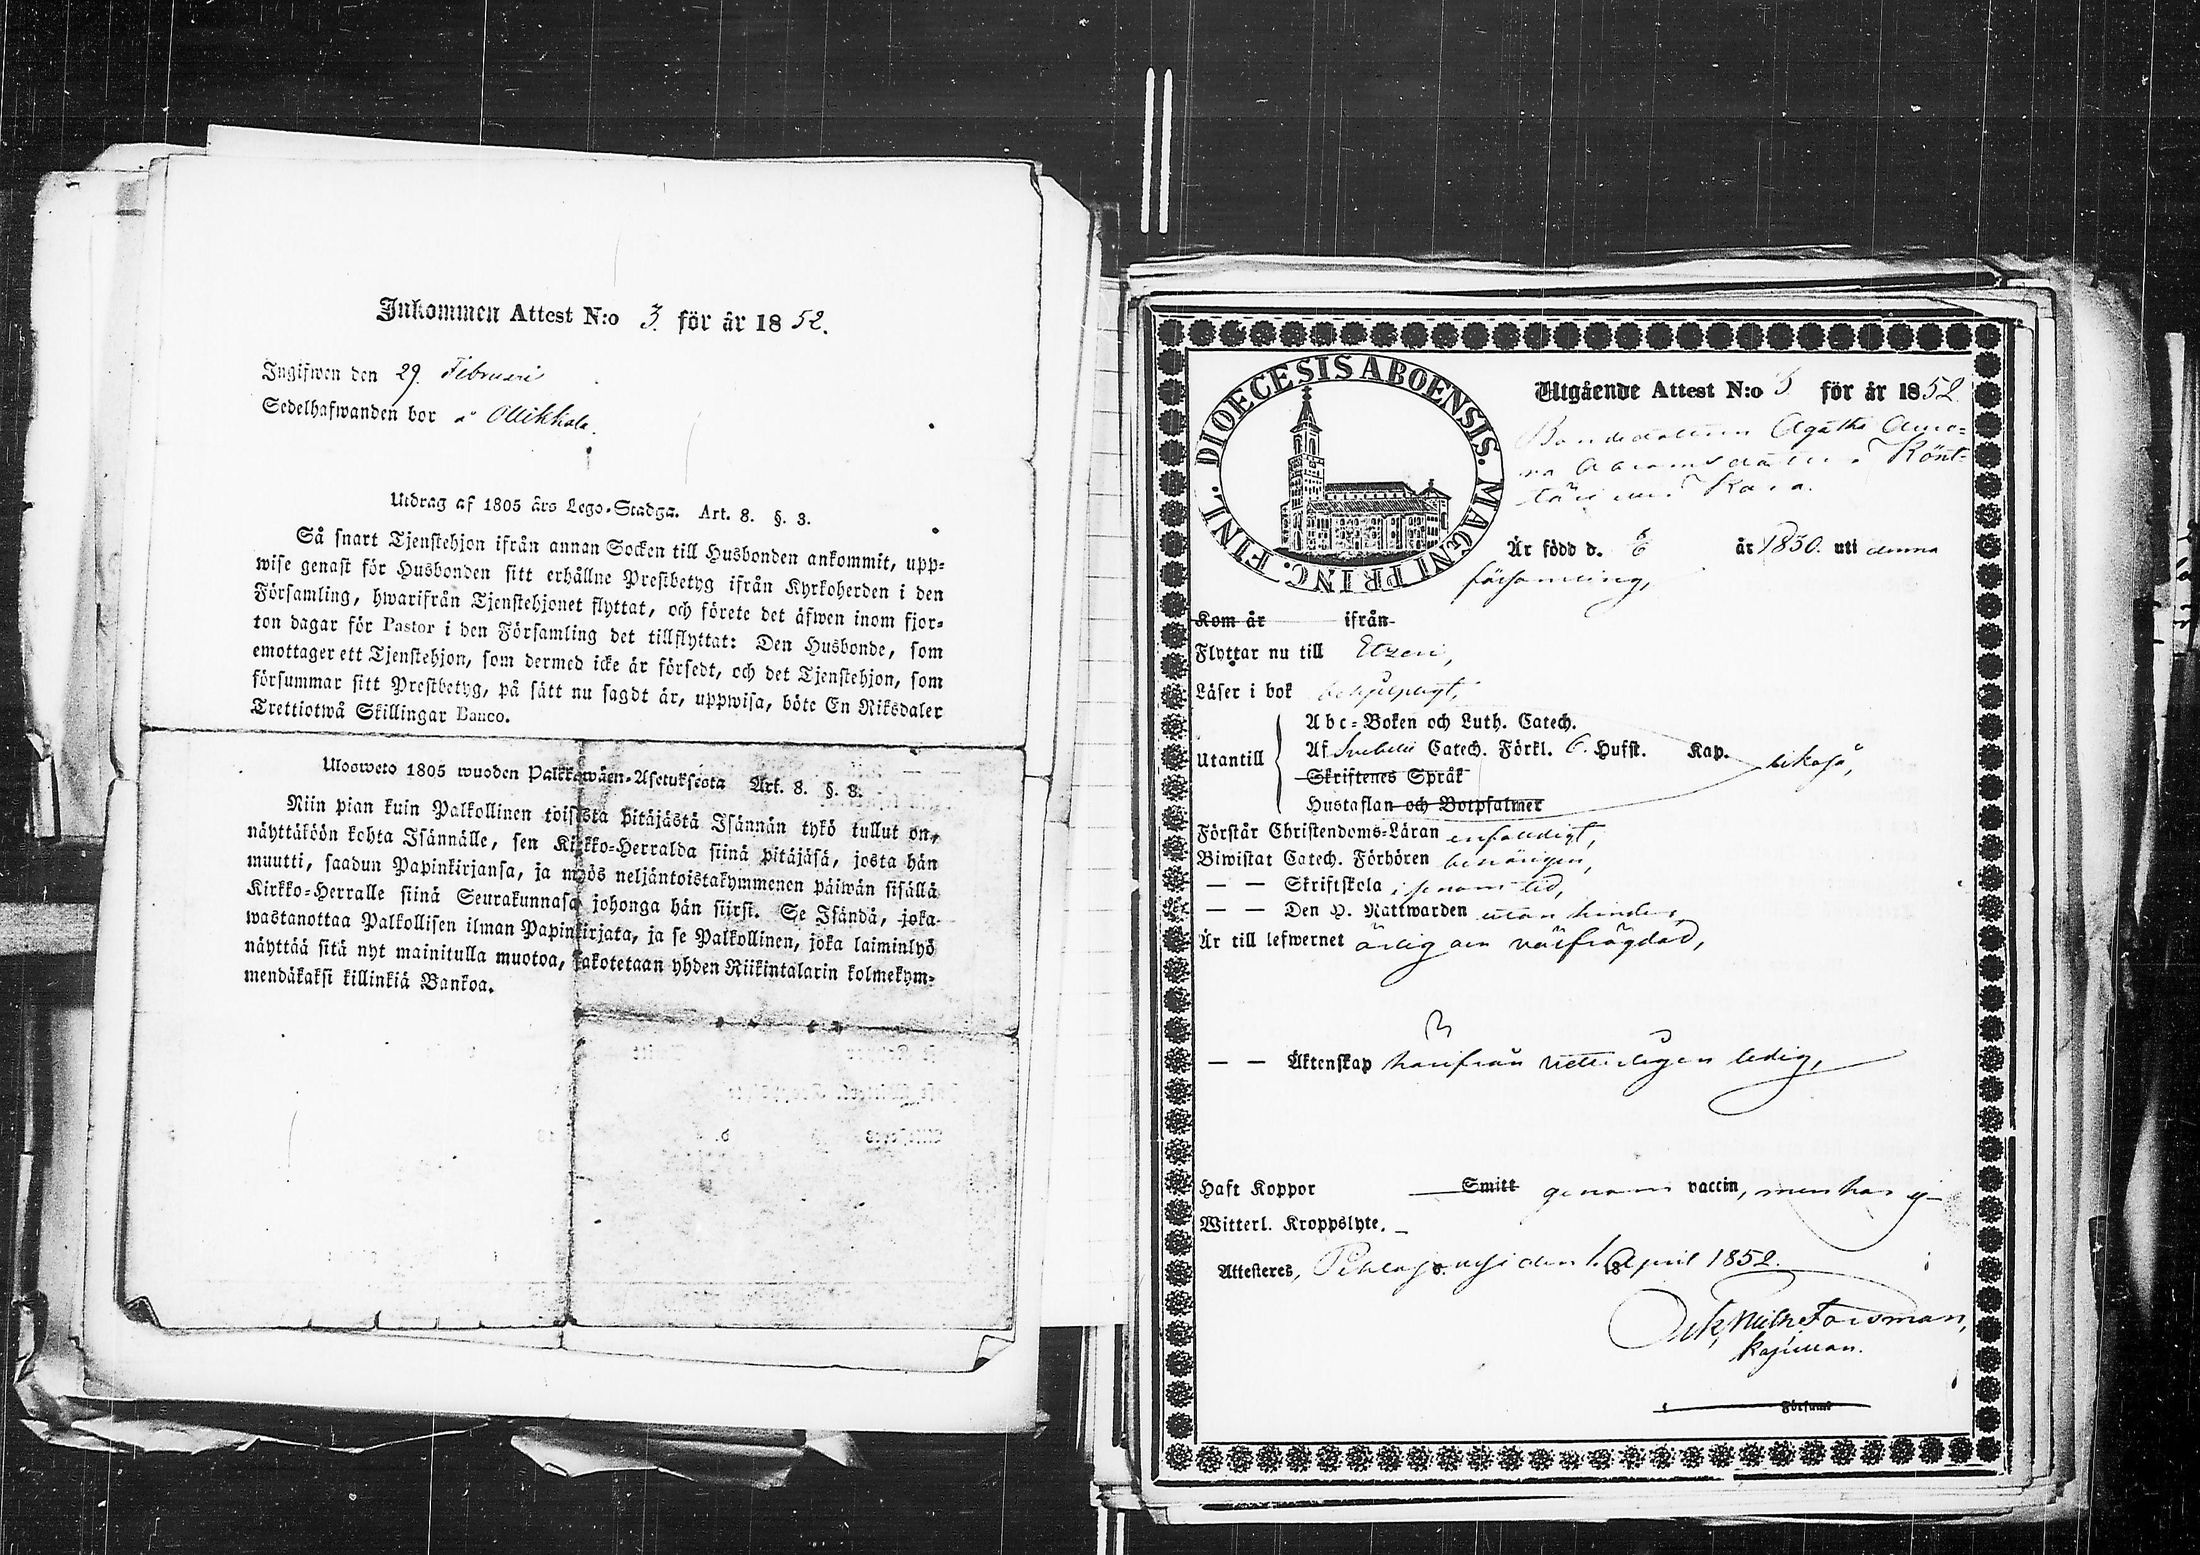 Inkommen Attest N:o 3. för år 1852.
Ingifwen den 29. Februari
Sedelhafwanden bor å Ollikkala.
Utdrag af 1805 års Lego-Stadga. Art. 8. §. 3.
Så snart Tjenstehjon ifrån annan Socken till Husbonden ankommit, upp-
wise genast för Husbonden sitt erhållne Prestbetyg ifrån Kyrkoherden i den
Församling, hwarifrån Tjenstehjonet flyttat, och förete det äfwen inom fjor-
ton dagar för Pastor i den Församling det tillflyttat: Den Husbonde, som
emottager ett Tjenstehjon, som dermed icke är försedt, och det Tjenstehjon, som
försummar sitt Prestbetyg, på sätt nu sagdt är, uppwisa, böte En Riksdaler
Trettiotwå Skillingar Banco.
Ulosweto 1805 wuoden Palkkawäen-Asetuksesta Art. 8. §. 3.
Niin pian kuin Palkollinen toisesta pitäjästä Isännän tykö tullut on,
näyttäköön kohta Isännälle, sen Kirkko-Herralda siinä pitäjäsä, josta hän
muutti, saadun Papinkirjansa, ja myös neljäntoistakymmenen päiwän sisällä
Kirkko-Herralle siinä Seurakunnasa johonga hän siirsi. Se Isändä, joka
wastanottaa Palkollisen ilman Papinkirjata, ja se Palkollinen, joka laiminlyö
näyttää sitä nyt mainitulla muotoa, sakotetaan yhden Riikintalarin kolmekym-
mendäkaksi killinkiä Bankoa.
DIOECESIS ABOENSIS. MAGNI PRINC. FINL.
Utgående Attest N:o 3 för år 1852
Bondedottren Agatha
Abramsdotter Könt-
Är född d. 6/8 år 1830. uti denna
församling,
Kom år ifrån
Flyttar nu till
Läser i bok
Abc-Boken och Luth. Catech.
Utantill Af Svebelii Catech. Förkl. 6. Hufst. Kap. likaså,
Skriftenes Språk
Hustaflan och Botpsalmer
Förstår Christendoms-Läran enfaldigt,
Biwistat Catech. Förhören
— — Skriftskola i sinom tid,
— — Den H. Nattwarden utan hinder,
Är till lefwernet ärlig och välfrägdad,
— — Äktenskap härifrån vetterligen ledig,
Haft Koppor Smitt genom vaccin, men har ej
Witterl. Kroppslyte.
Attesteres, den 1. April 1852.
Forsman,
Församl